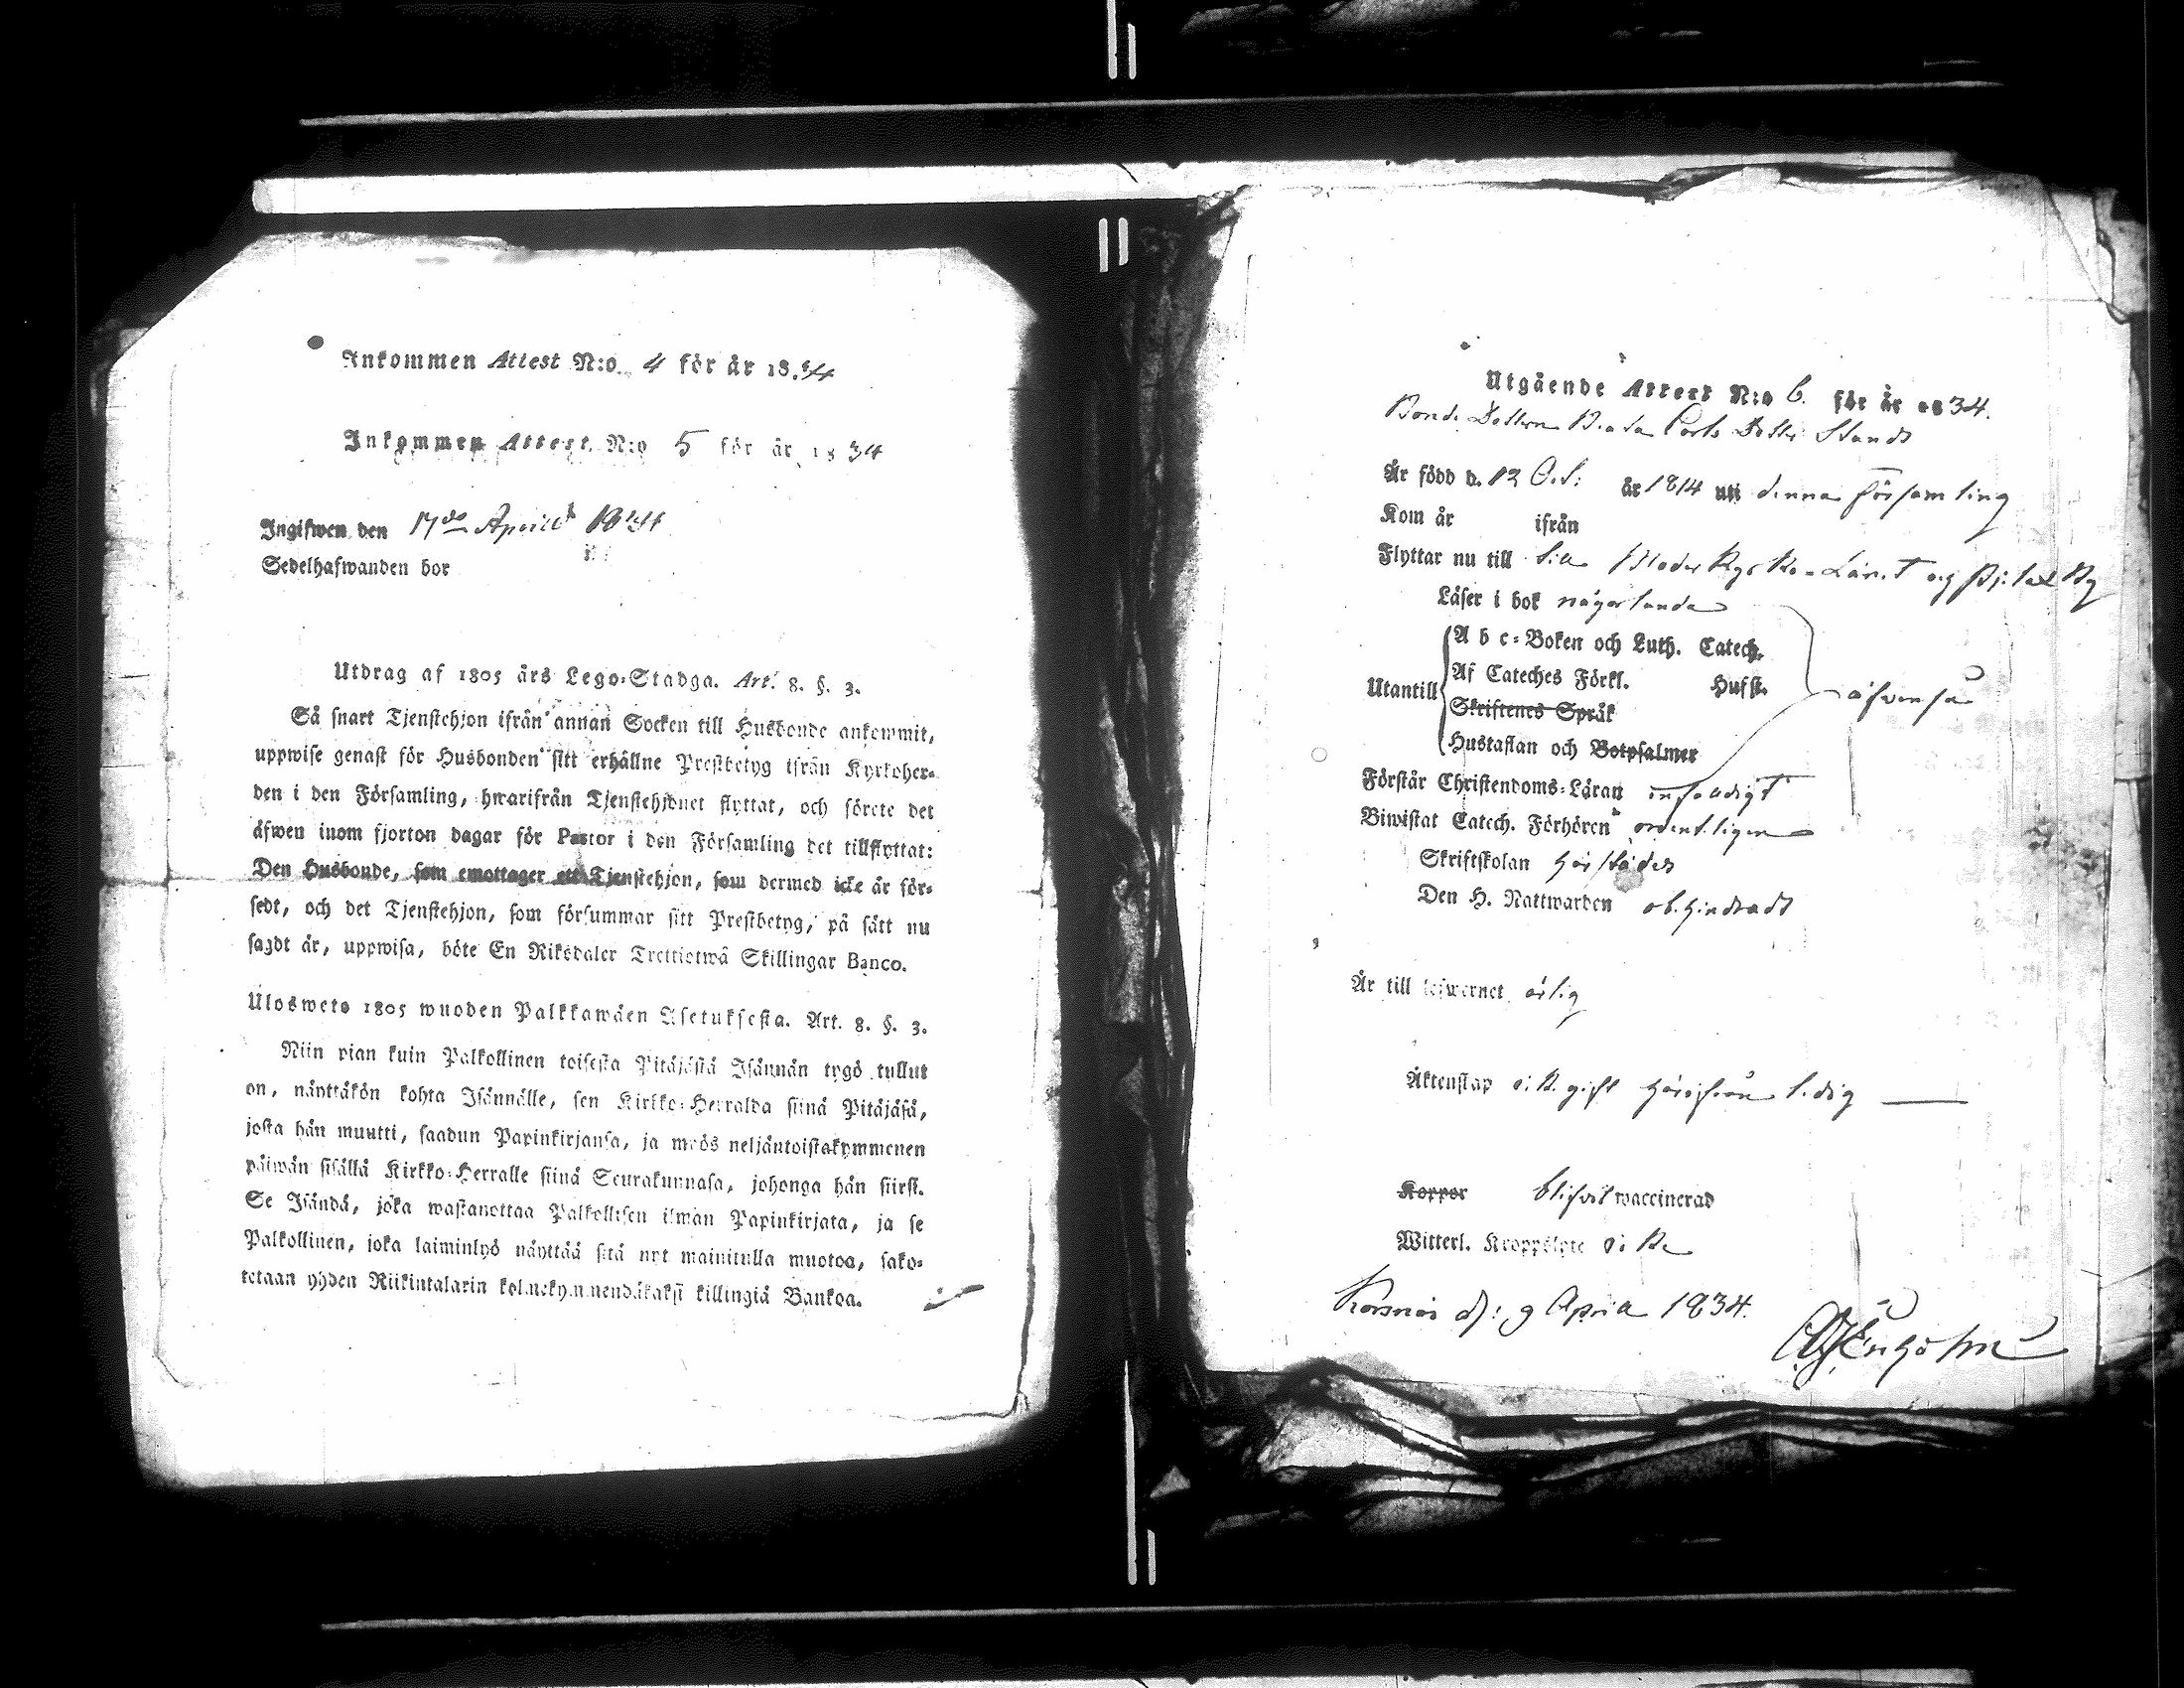 Inkommen Attest N:o 4 för år 1834
Inkommen Attest N:o 5 för år 1834
Ingifwen den 17de Aprill 1834
Sedelhafwanden bor
Utdrag af 1805 års Lego-Stadga. Art. 8. §. 3.
Så snart Tjenstehjon ifrån annan Socken till Husbonde ankommit,
uppwise genast för Husbonden sitt erhållne Prestbetyg ifrån Kyrkoher-
den i den Församling, hwarifrån Tjenstehjonet flyttat, och förete det
äfwen inom fjorton dagar för Pastor i den Församling det tillflyttat:
Den Husbonde, som emottager ett Tjenstehjon, som dermed icke är för-
sedt, och det Tjenstehjon, som försummar sitt Prestbetyg, på sätt nu
sagdt är, uppwisa, böte En Riksdaler Trettiotwå Skillingar Banco.
Ulosweto 1805 wuoden Palkkawäen Asetuksesta. Art. 8. §. 3.
Niin pian kuin Palkollinen toisesta Pitäjästä Isännän tygö tullut
on, näyttäkön kohta Isännälle, sen Kirkko-Herralda siinä Pitäjäsä,
josta hän muutti, saadun Papinkirjansa, ja myös neljäntoistakymmenen
päiwän sisällä Kirkko-Herralle siinä Seurakunnasa, johonga hän siirsi.
Se Isändä, joka wastanottaa Palkollisen ilman Papinkirjata, ja se
Palkollinen, joka laiminlyö näyttää sitä nyt mainitulla muotoa, sako-
tetaan yhden Riikintalarin kolmekymmendäkaksi killingiä Bankoa.
Utgående Attest N:o 6. för år 1834.
Bonde Dottern Beata Carls Dotter
Är född d. 12 Oct: år 1814 uti denna församling
Kom år ifrån
Flyttar nu till och By
Läser i bok någorlunda
Utantill
A b c-Boken och Luth. Catech.
Af Cateches Förkl. Hufst.
Skriftenes Språk
Hustaflan och Botpsalmer
äfvenså
Förstår Christendoms-Läran enfaldigt
Biwistat Catech. Förhören ordentligen
Skriftskolan härstädes
Den H. Nattwarden obehindradt
Är till lefwernet ärlig
Äktenskap ei gift härifrån ledig
Koppor blifvit waccinerad
Witterl. Kroppslyte
Korsnäs d: 9 April 1834.